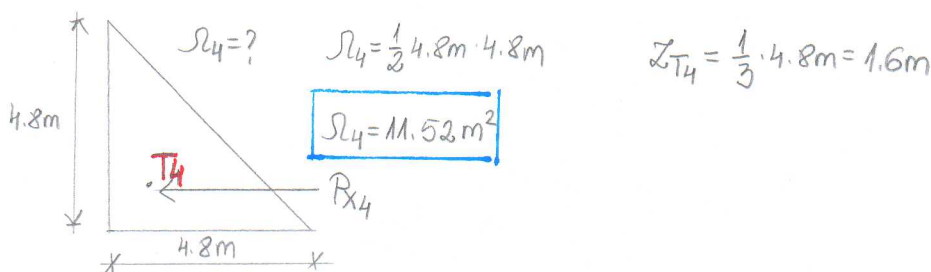 Ω₄=?
Ω₄=1/2 4.8m·4.8m
Z_T₄=1/3·4.8m=1.6m
4.8m
Ω₄=11.52m²
T4
Px₄
4.8m